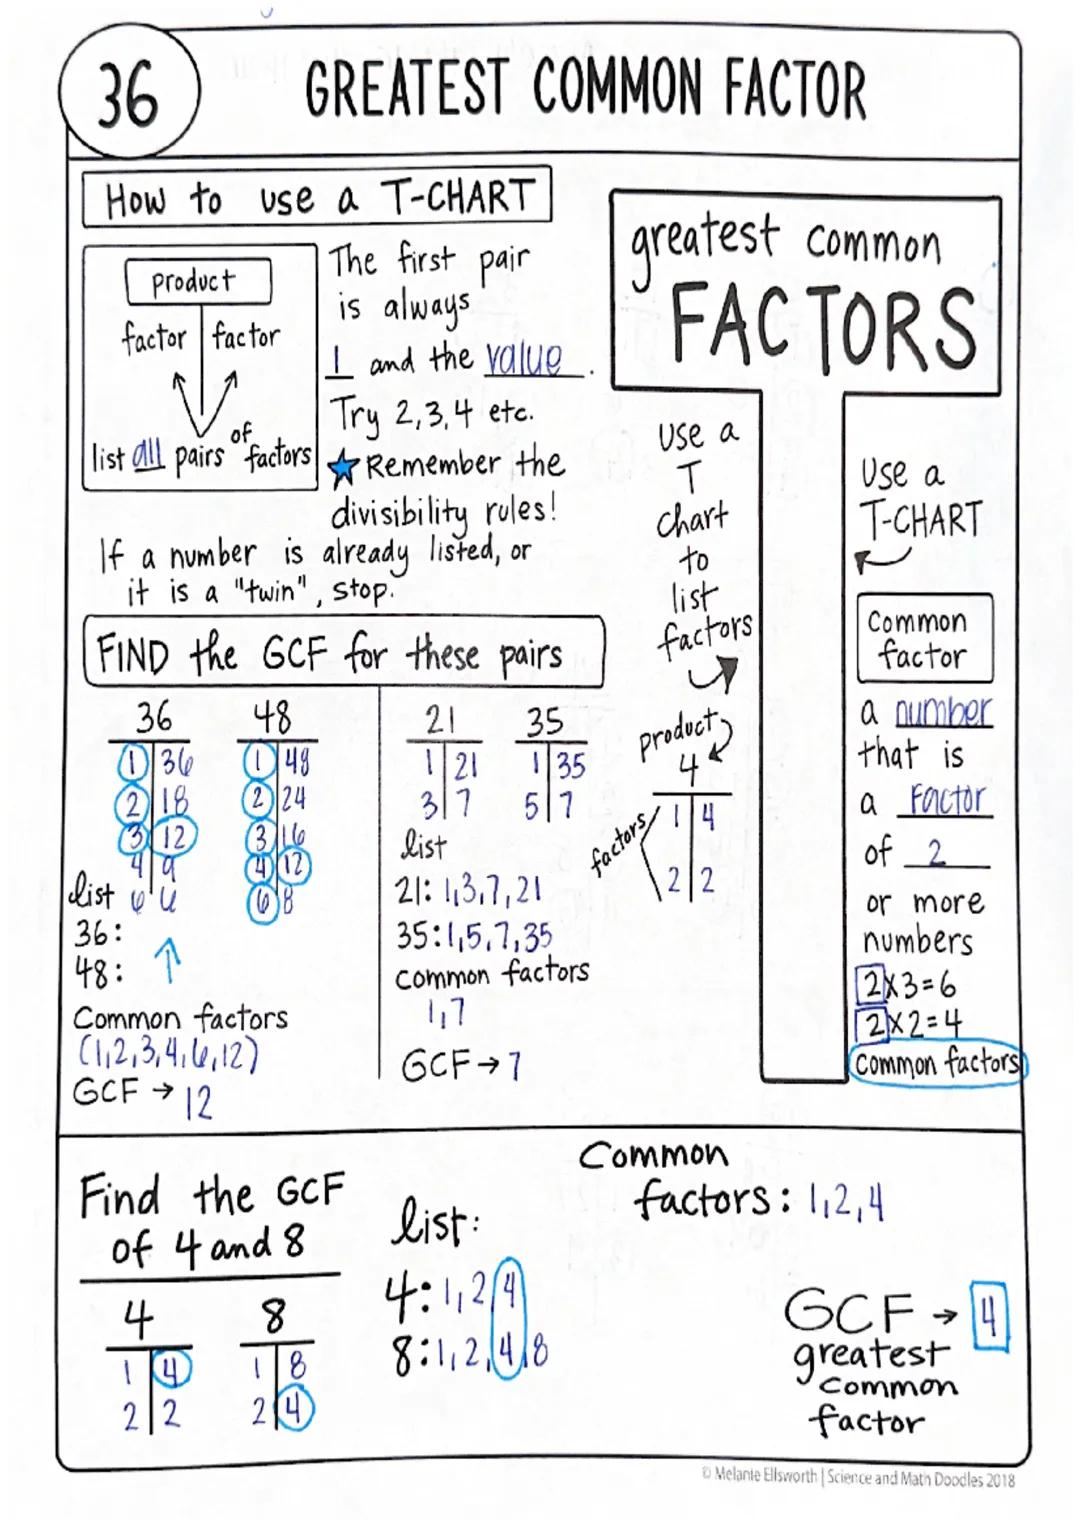 36
GREATEST COMMON FACTOR
How to use a T-CHART
product
factor factor
list all pairs of factors
The first pair
is always
1 and the value.
Try 2,3,4 etc.
Remember the
divisibility rules!
If a number is already listed, or
it is a "twin", stop.
greatest common
FACTORS
use a
T
chart
to
list
factors
product
4
factors
1 4
2 2
Use a
T-CHART
Common
factor
a number
that is
a Factor
of 2
or more
numbers
2x3=6
2x2=4
Common factors
FIND the GCF for these pairs
36
1 36
2 18
3 12
4 9
6 6
48
1 48
2 24
3 16
4 12
6 8
list
36:
48:
Common factors
(1,2,3,4,6,12)
GCF → 12
21
1 21
3 7
35
1 35
5 7
list
21: 1,3,7,21
35:1,5,7,35
common factors
1,7
GCF → 7
Find the GCF
of 4 and 8
4
1 4
2 2
8
1 8
2 4
list:
4: 1,2,4
8:1,2,4,8
Common
factors: 1,2,4
GCF → 4
greatest
common
factor
© Melanie Ellsworth | Science and Math Doodles 2018